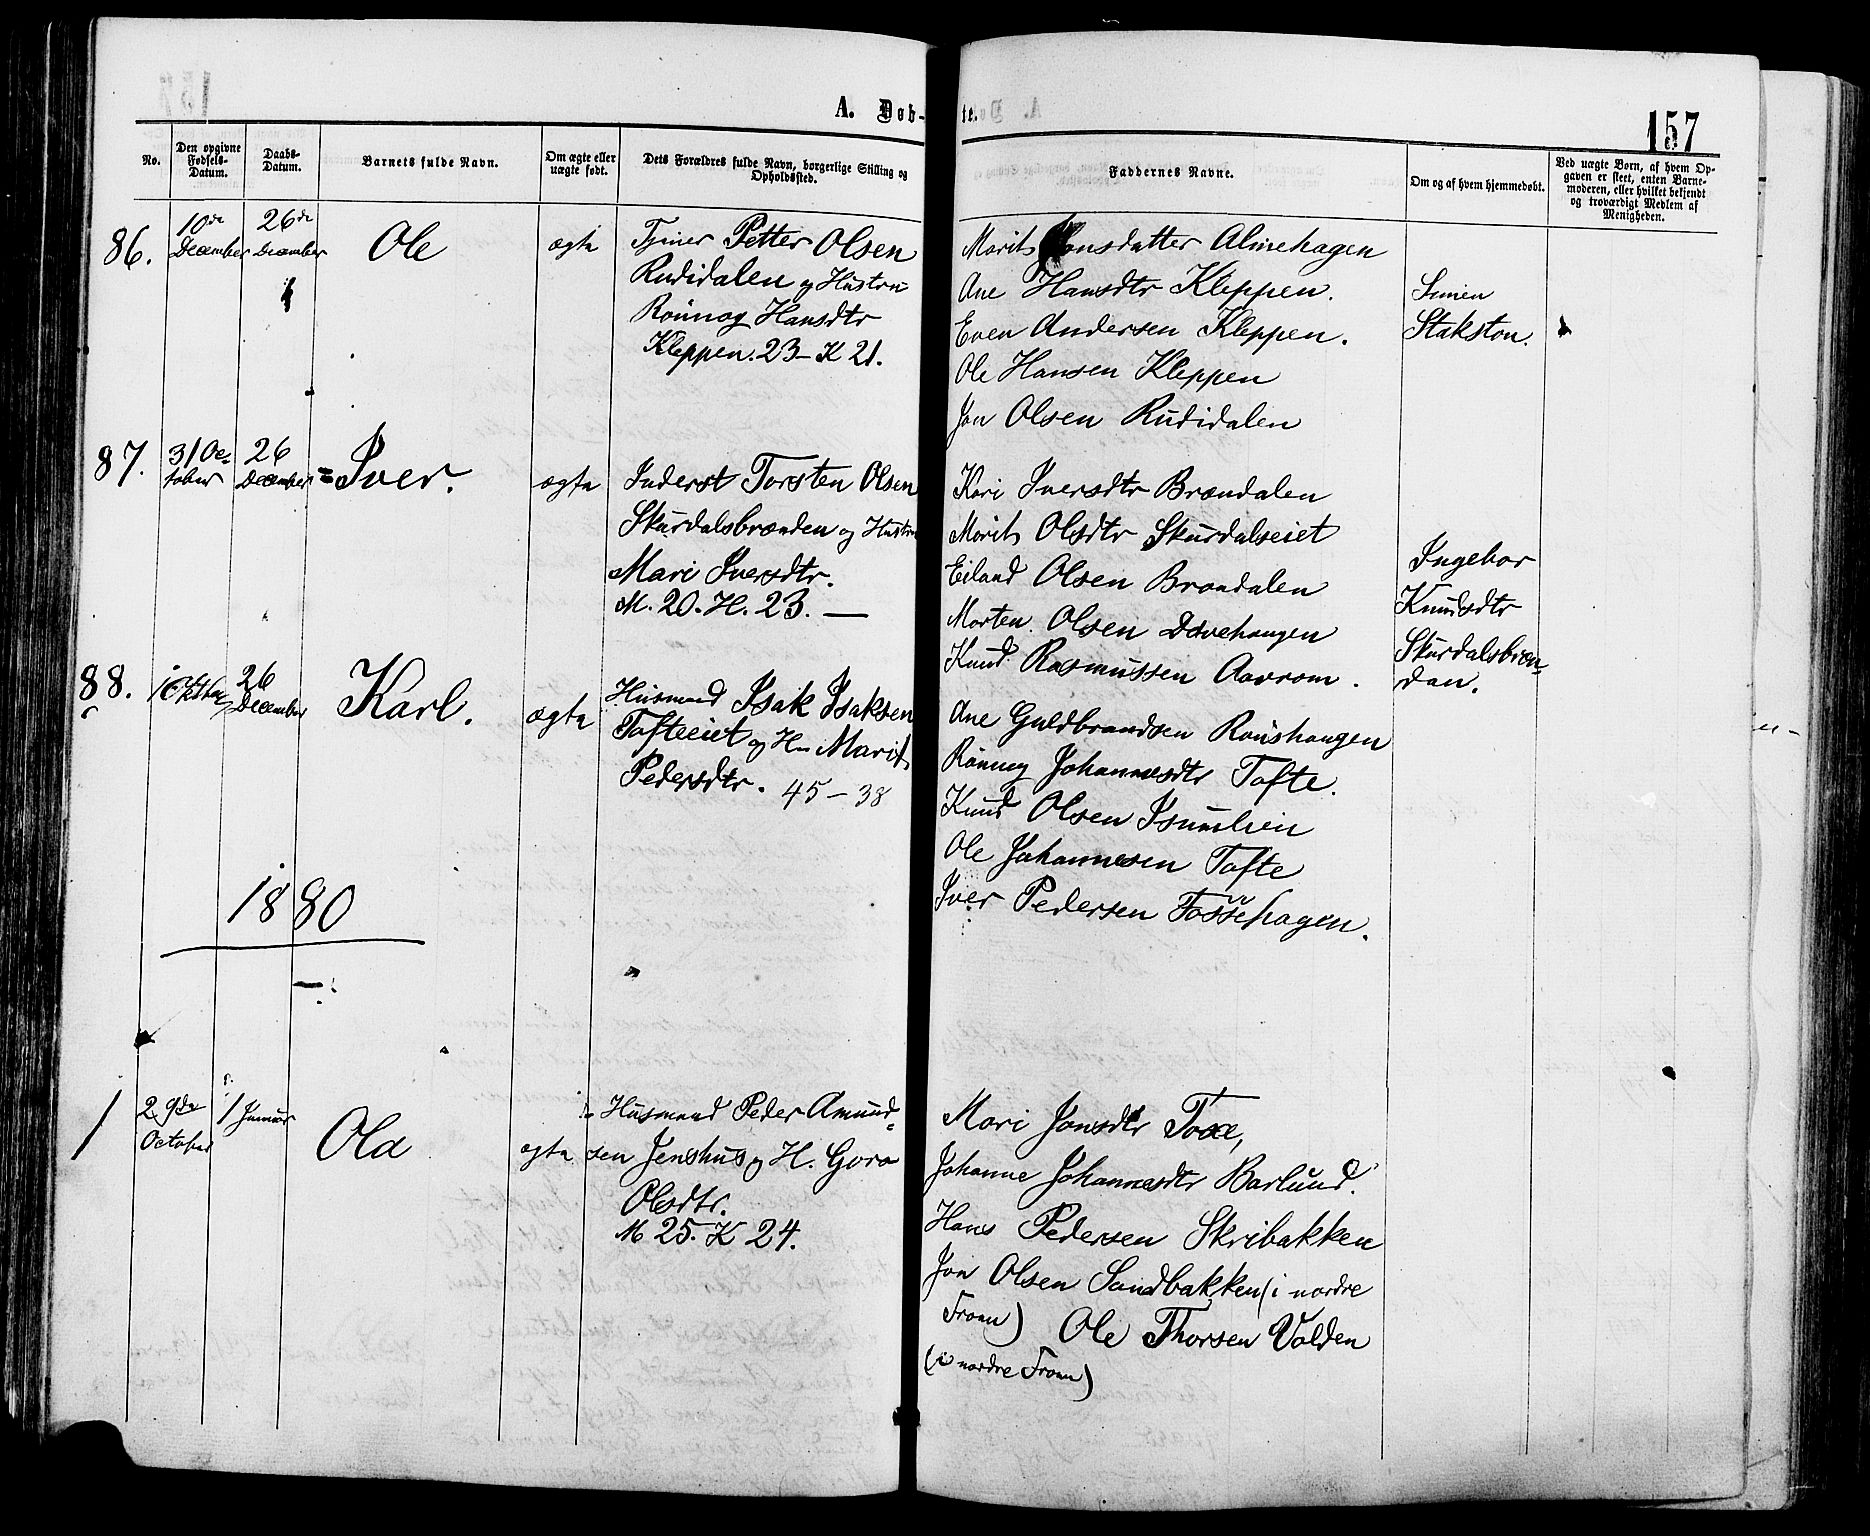 A. Døb-
te.
157
No.
Den opgivne Fødsels-Datum.
Daabs-Datum.
Barnets fulde Navn.
Om ægte eller uægte født.
Dets Forældres fulde Navn, borgerlige Stilling og Opholdssted.
Faddernes Navne.
Om og af hvem hjemmedøbt.
Ved uægte Børn, af hvem Opgaven er skeet, enten Barnemoderen, eller hvilket bekjendt og troværdigt Medlem af Menigheden.
86.
10de
December
26de
December
Ole
ægta
Petter Olsen
Rudidalen og Hustru
Rönnog Hansdtr
Kleppen. 23 - K 21.
Marit Hansdatter Almehagen
Ane Hansdtr Kleppen.
Even Andersen Kleppen.
Ole Hansen Kleppen
Jon Olsen Rudidalen
Simen
Stakston.
87.
31 Oc-
tober
26
December
Iver.
ægta
Inderst Torsten Olsen
Skurdalsbrænden og Hustru
Mari Iversdtr.
M. 20. H. 23. —
Kari Iversdtr Brændalen
Marit Olsdtr Skurdalseiet
Eiland Olsen Brændalen
Morten Olsen Davehaugen
Knud Rasmussen Aavrom.
Ingebor
Knudsdtr
Skurdalsbræn-
dan.
88.
26
December
Karl.
ægta
Husmand Isak Isaksen
Tofteeiet og H Marit
Pedersdtr. 45 - 38
Ane Guldbrandsen Rönshaugen
Rönnog Johannesdtr Tofte.
Knud Olsen Isumlien
Ole Johannesen Tofte
Iver Pedersen Fossehagen.
1880
1
29de
October
1 Januar
Ola
ægta
Husmand Peder Amund-
sen Jenshus og H. Goro
Olesdtr.
M 25. K 24.
Mari Jonsdtr
Johanne Johannesdtr Barlund.
Hans Pedersen Skribakken
Jon Olsen Sandbakken (i nordre
Fron) Ole Thorsen Volden
(i nordre Fron)